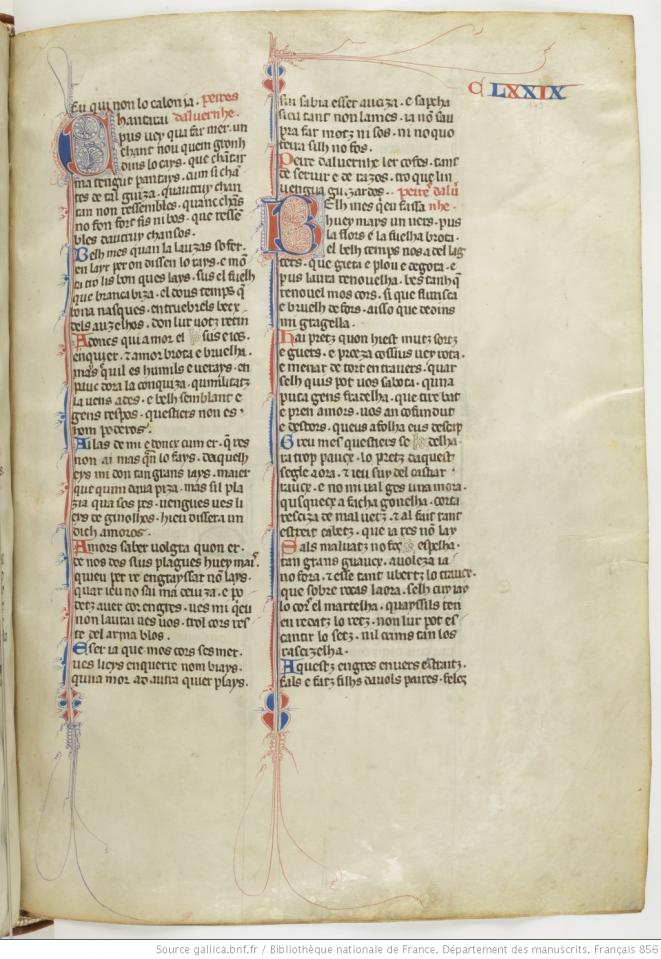 C LXXIX
Eu qui non lo calonja. Peires
Chantarai dalvernhe.
pus vey qua far mer. un
chant nou quem gronh
dins lo cays. que chantar
ma tengut pantays. cum si chā
tes de tal guiza. quautruy chan
tan non ressembles. quanc chās
no fon fort fis ni bos. que resse
bles dautruy chansos.
Belh mes quan la lauzas so fer.
en layr per on dissen lo rays. e mō
ta tro lis bon ques lays. sus el fuelh
que branca biza. el dous temps q̄
bona nasques. entruebrels becx
dels auzelhos. don lur votz retin
Adoncs qui amor el sus e ios.
enquier. z amor brota e bruelha.
mas qui les humils e verays. en
pauc dora la conquiza. qumilitatz
la vens ades. e belh semblant e
gens respos. questiers non es
hom poderos.
Ailas de mi e doncx cum er. q̄ res
non ai mas q̄n lo fays. daquelh
eys mi don tan grans rays. maier
que quim dava piza. mas sil pla
zia qua sos pes. vengues ves li
eys de ginolhos. hieu dissera un
dich amoros.
Amors saber volgra quon er.
de nos dos sius plagues huey mai.
quieu per re engrayssat non lays.
quar ieu no sui ma deviza. e po
detz aver cor engres. ves mi q̄eu
non laurai ves vos. trol cors res
te del arma blos.
Eser ia que mos cors ses mer.
ves lieys enquerre nom biays.
quna mor ad autra quier plays.
san sabia esser auciza. e sapcha
si eu tant non lames. ia nō sau
pra far motz ni sos. ni no quo
feira silh no fos.
Peire dalvernhe ler cofes. tant
de servir e de razos. tro que lin
vengua guizardos. peire dalv
Belh mes q̄eu fassa nhe.
huey mays un vers. pus
la flors e la fuelha brota.
el belh temps nos a del lag
ters. que gieta e plou e degota. e
pus laura renovelha. bes tanh q̄
renovel mos cors. si que flurisca
e bruelh defors. aisso que dedins
mi gragella.
Hai pretz quon hiest mutz sortz
e guers. e proeza cossius vey rota.
e menar de tort en travers. quar
selh quis pot vos sabota. quna
puta gens fradelha. que tire bat
e pren amors. vos an cofundut
e destors. queus a folha eus descip
Greu mes questiers se delha.
ra trop paucx. lo pretz daquest
segle aora. z ieu suy del castiar
raucx. e no mi val ges una mora.
qusquecx a facha gonelha. corta
resciza de malvetz. z al faut tant
estreit cabetz. que ia res non lay
Sals malvatz no fos espelha.
tan grans gaucx. avoleza ia
no fora. z esse tant ubertz lo traucx.
que sobre totas laora. selh cuy lay
lo cor el martelha. quayssils ten
en redatz lo fretz. non lur pot es
cantir lo setz. nil crims tan los
rascizelha.
Aquestz engres envers estraitz.
fals e fatz filhs davols paires. felos
Source gallica.bnf.fr / Bibliothèque nationale de France. Département des manuscrits. Français 856